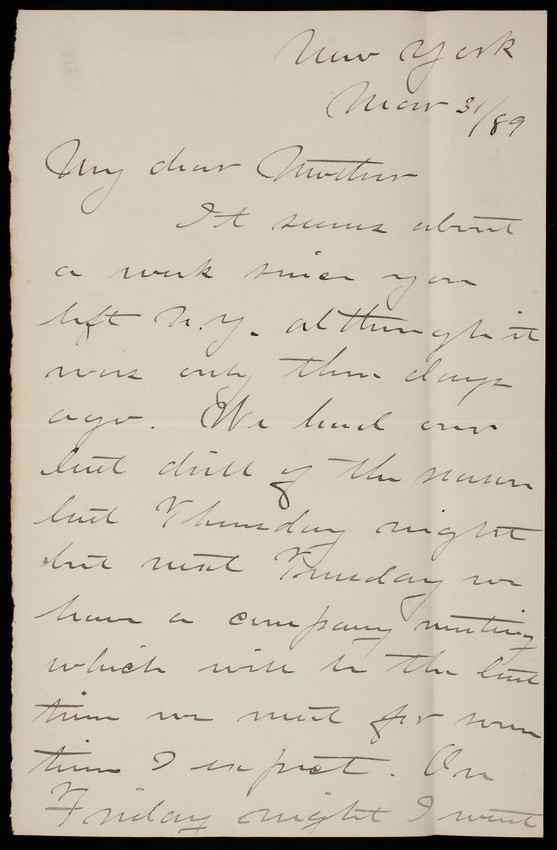 New York
Mar 31/89
My dear Mother
It seems about
a week since you
left N.Y. although it
was only three days
ago. We had our
last drill of the season
last Thursday night
but next Tuesday we
have a company meeting
which will be the last
time we meet for some
time I expect. On
Friday night I went